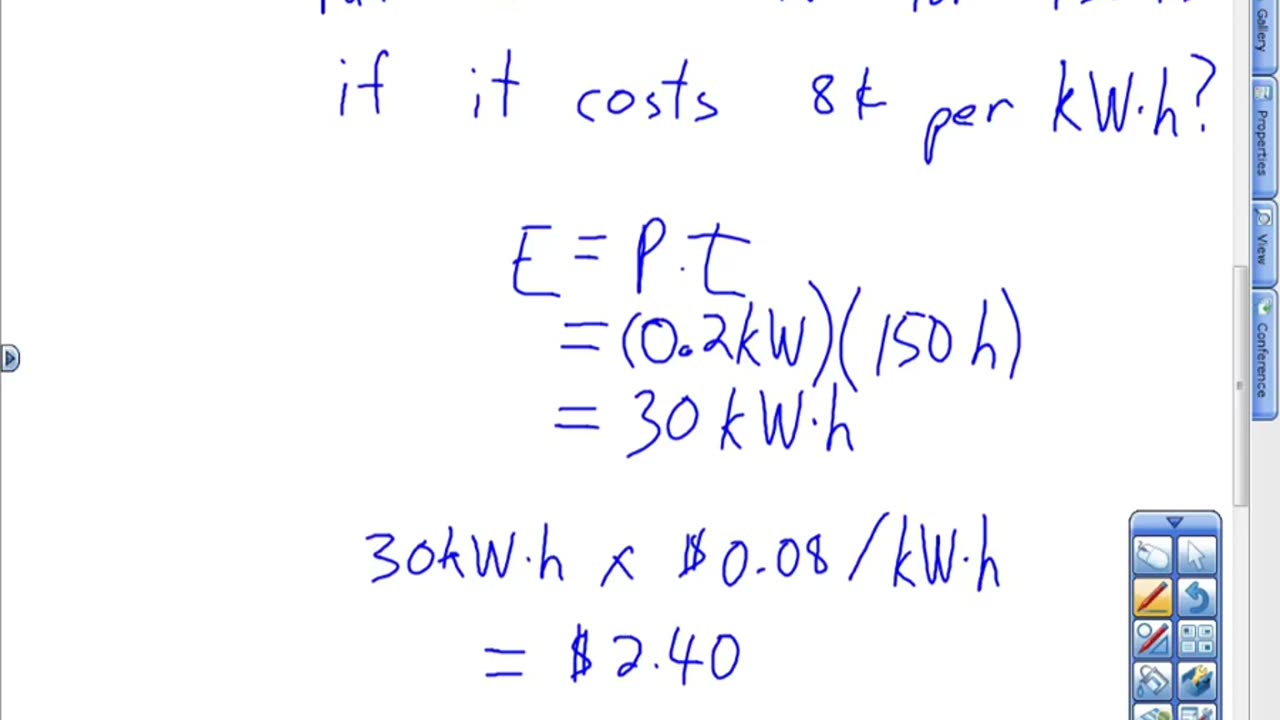 if it costs 8¢ per kW·h?
E = P·t
= (0.2kW)(150h)
= 30kW·h
30kW·h x $0.08/kW·h
= $2.40
Gallery
Properties
View
Conference